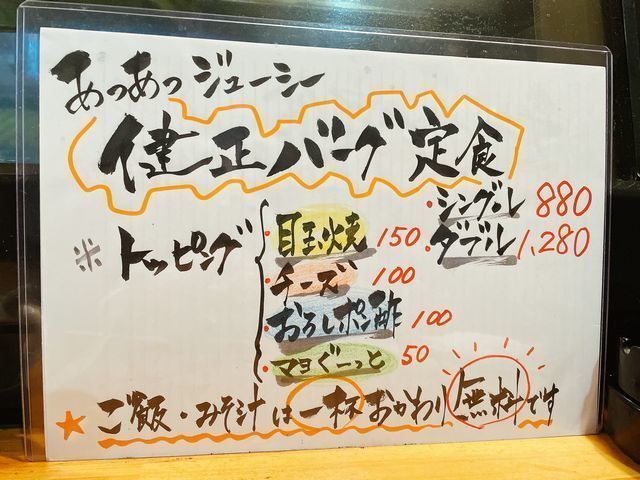 あつあつジューシー
健正バーグ定食
・シングル 880
・ダブル 1,280
※トッピング
・目玉焼 150
・チーズ 100
・おろしポン酢 100
・マヨぐーっと 50
★ご飯・みそ汁は一杯おかわり無料です